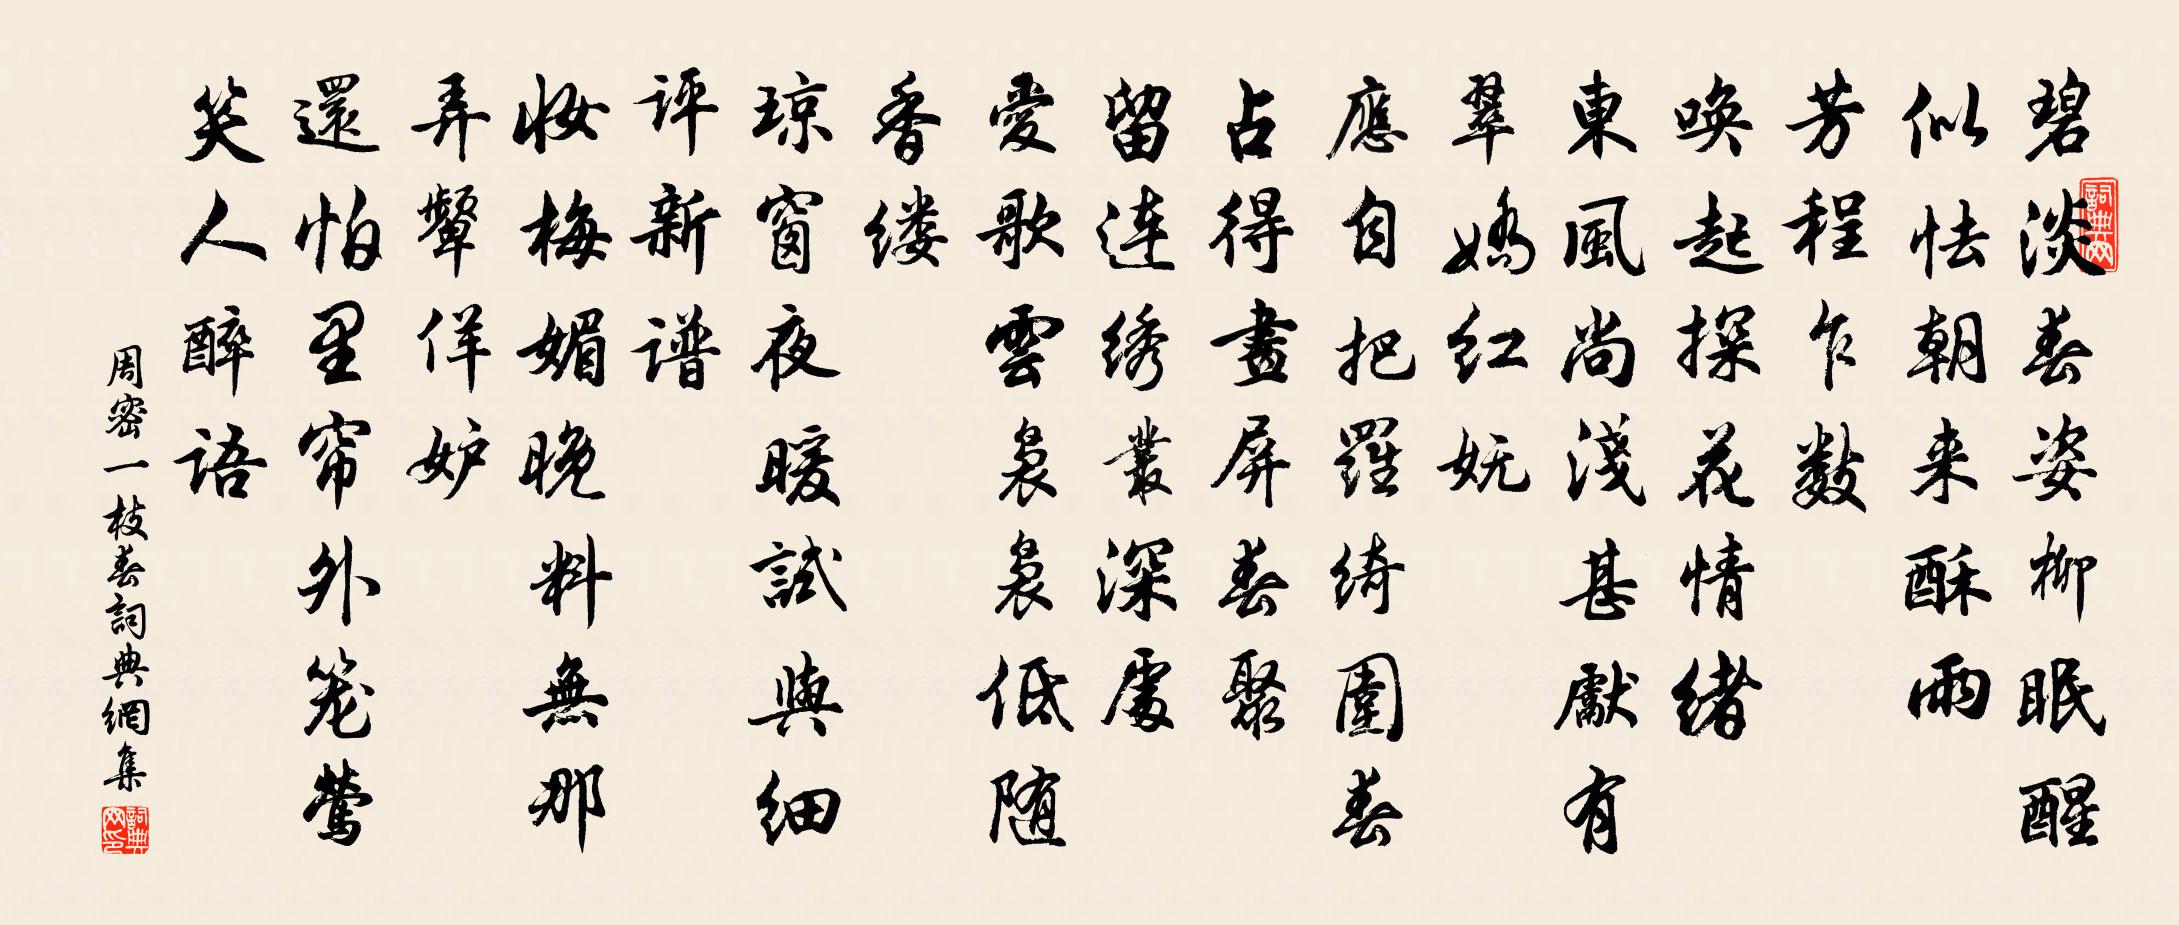 碧淡春姿柳眠醒
似怯朝来酥雨
芳程乍數
唤起探花情緒
東風尚淺甚獻有
翠嬌红妩
應自把羅綺圍春
占得畫屏春聚
留連绣叢深處
愛歌雲裊裊低随
香缕
琼窗夜暖試與细
评新谱
妆梅媚晚料無那
弄顰佯妒
還怕里帘外笼鶯
笑人醉语
周密一枝春詞典網集
詞典网
詞典网印